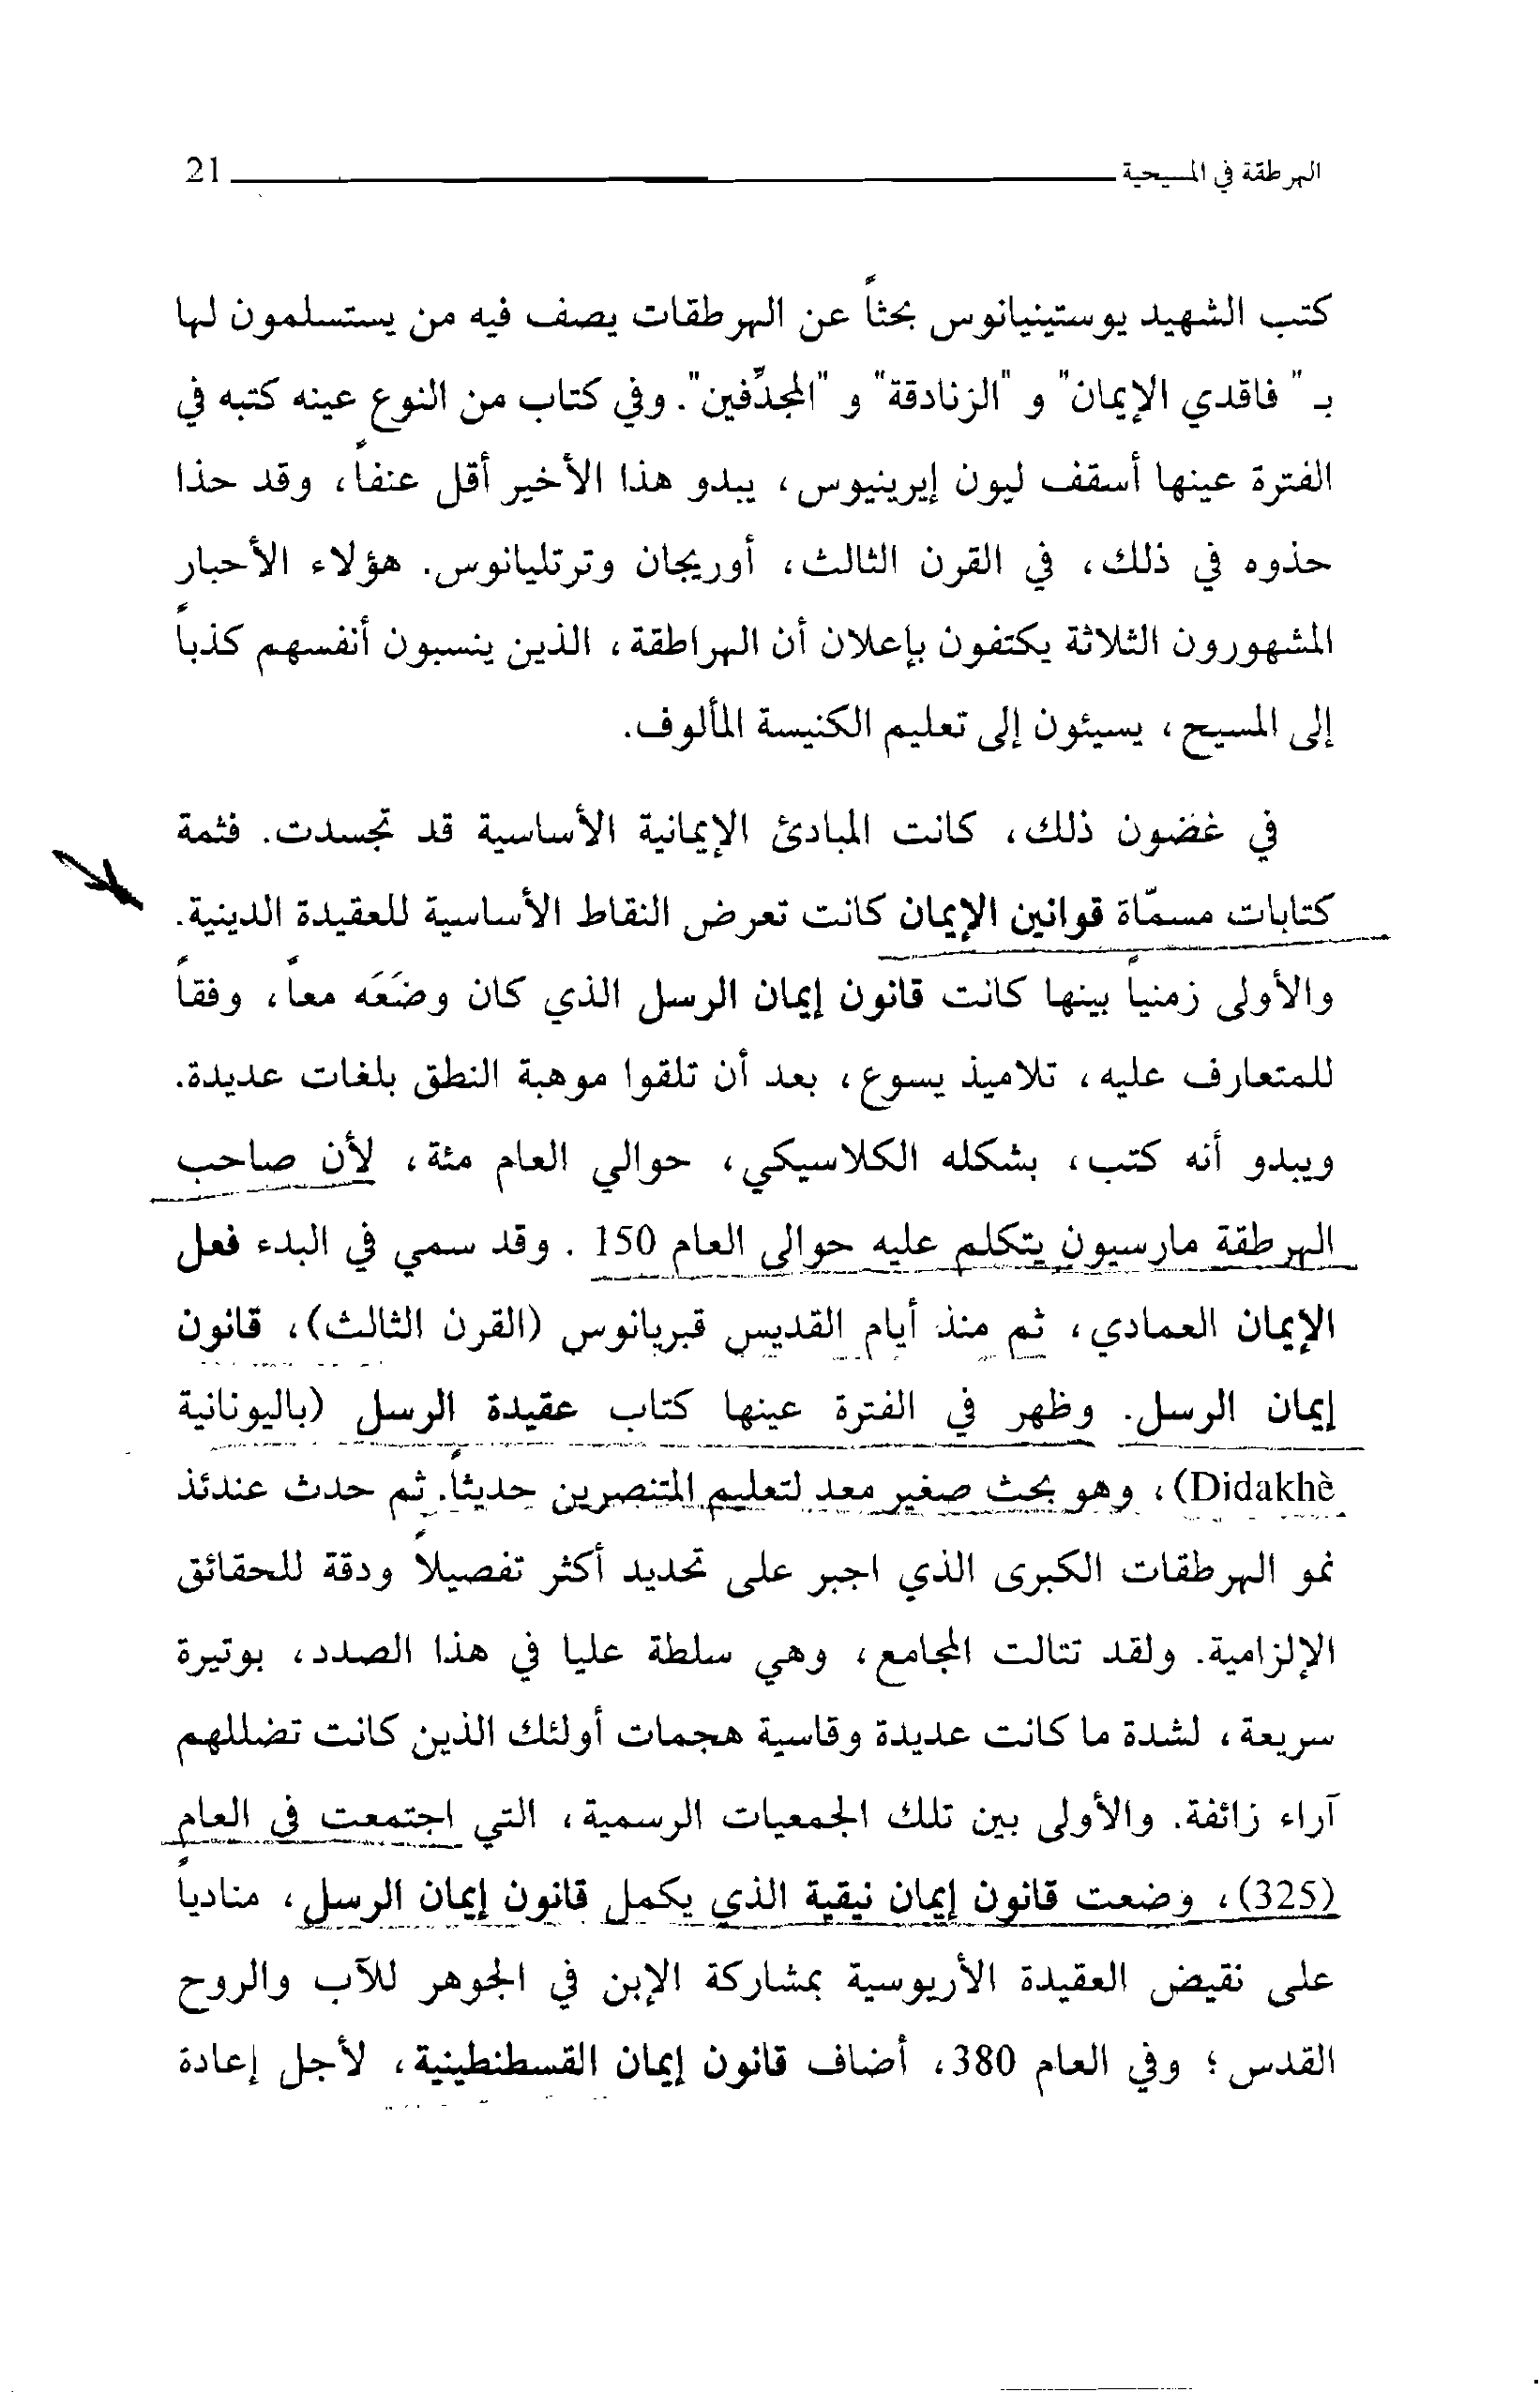 الهرطقة في المسيحية 21
كتب الشهيد يوستينيانوس بحثاً عن الهرطقات يصف فيه من يستسلمون لها
بـ " فاقدي الإيمان" و "الزنادقة" و "المجدّفين". وفي كتاب من النوع عينه كتبه في
الفترة عينها أسقف ليون إيرينيوس، يبدو هذا الأخير أقل عنفاً، وقد حذا
حذوه في ذلك، في القرن الثالث، أوريجان وترتليانوس. هؤلاء الأحبار
المشهورون الثلاثة يكتفون بإعلان أن الهراطقة، الذين ينسبون أنفسهم كذباً
إلى المسيح، يسيئون إلى تعليم الكنيسة المألوف.
في غضون ذلك، كانت المبادئ الإيمانية الأساسية قد تجسدت. فثمة
كتابات مسمّاة قوانين الإيمان كانت تعرض النقاط الأساسية للعقيدة الدينية.
والأولى زمنياً بينها كانت قانون إيمان الرسل الذي كان وضَعَه معاً، وفقاً
للمتعارف عليه، تلاميذ يسوع، بعد أن تلقوا موهبة النطق بلغات عديدة.
ويبدو أنه كتب، بشكله الكلاسيكي، حوالي العام مئة، لأن صاحب
الهرطقة مارسيون يتكلم عليه حوالى العام 150 . وقد سمي في البدء فعل
الإيمان العمادي، ثم منذ أيام القديس قبريانوس (القرن الثالث)، قانون
إيمان الرسل. وظهر في الفترة عينها كتاب عقيدة الرسل (باليونانية
Didakhè)، وهو بحث صغير معد لتعليم المتنصرين حديثاً. ثم حدث عندئذ
نمو الهرطقات الكبرى الذي اجبر على تحديد أكثر تفصيلاً ودقة للحقائق
الإلزامية. ولقد تتالت المجامع، وهي سلطة عليا في هذا الصدد، بوتيرة
سريعة، لشدة ما كانت عديدة وقاسية هجمات أولئك الذين كانت تضللهم
آراء زائفة. والأولى بين تلك الجمعيات الرسمية، التي اجتمعت في العام
(325)، وضعت قانون إيمان نيقية الذي يكمل قانون إيمان الرسل، منادياً
على نقيض العقيدة الأريوسية بمشاركة الإبن في الجوهر للآب والروح
القدس؛ وفي العام 380، أضاف قانون إيمان القسطنطينية، لأجل إعادة